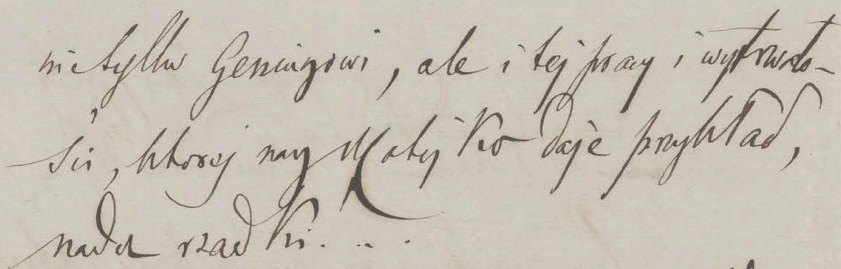 nietylko Geniuszowi, ale i tej pracy i wytrwało-
ści, ktorej nam Matejko daje przykład,
nader rzadki...